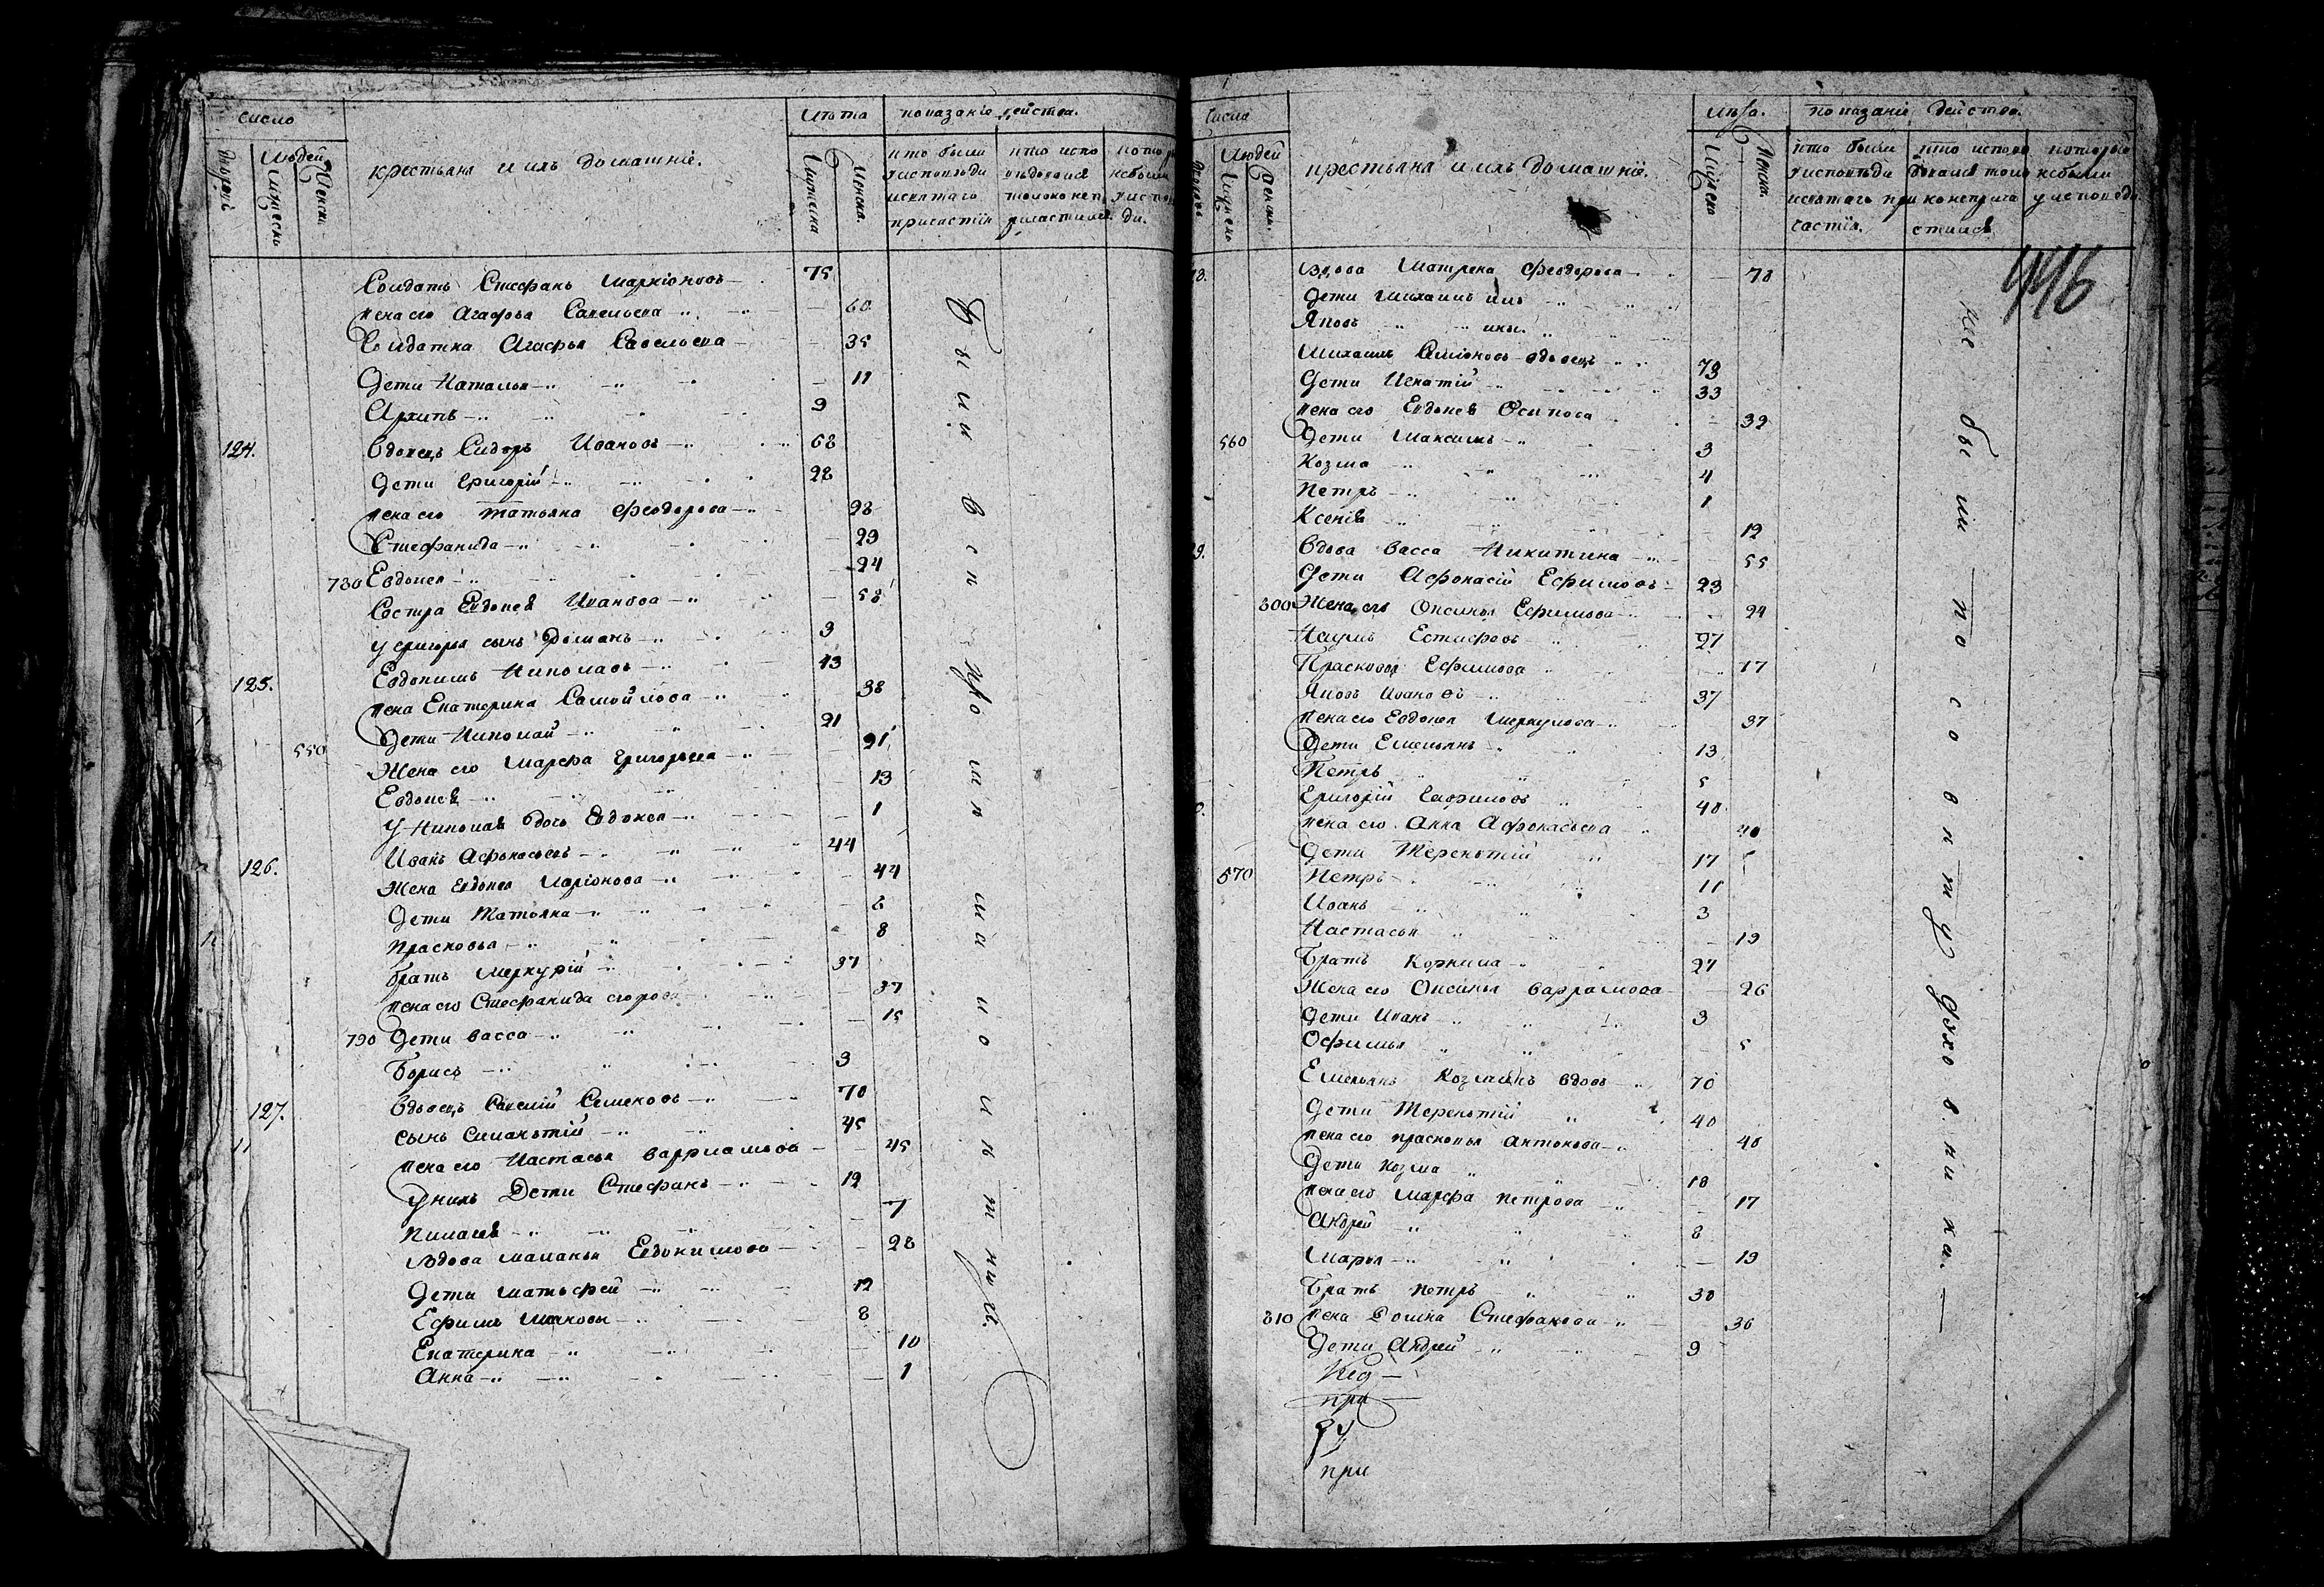 число
дворовъ
Людей
мужеска
женска
крестьяня и ихъ домашніе.
лѣта
мужеска
женска
показаніе действа.
кто были
у исповѣди
и святаго
причастія
кто испо
ведовался
толоко неп
ричастился
которые
не были
у испове
ди.
Солдатъ Стефанъ Маркіоновъ 75
жена его Агафья Савельева 60
Солдатка Агафья Савельева 35
Дети Наталья 11
Архипъ 9
124. Вдовецъ Сидоръ Ивановъ 68
Дети Григорій 28
жена его Татьяна Феодорова 28
Стефанида 23
730 Евдокея 24
Сестра Евдокея Иванова 58
у Григорья сынъ Романъ 3
125. Евдокимъ Николаевъ 43
жена Екатерина Самойлова 38
Дети Николай 21
550 Жена его Марфа Григорьева 21
Евдокея 13
У Николая дочь Евдокея 1
126. Иванъ Афонасьевъ 44
Жена Евдокея Ларіонова 44
Дети Татьяна 8
Прасковья 8
братъ Меркурій 37
жена его Стефанида егорова 37
790 Дети васса 15
Борисъ 3
127. Вдовецъ Савелій Семеновъ 70
сынъ Силантій 45
жена его Настасья варрламова 45
у нихъ Дети Стефанъ 12
Пилагея 7
вдова маланья Евдокимова 28
Дети матьфей 12
Ефимъ Ивановы 8
Екатерина 10
Анна 1
Были в споведи и
число
дворовъ
Людей
мужеска
женска
крестьяня и ихъ домашніе.
лѣта.
мужеска
женска
показаніе действа.
кто были
у исповѣди
и святаго при
частія.
кто испове
довался толо
ко неприча
стился
которые
не были
у исповеди
416
вдова Матрена Феодорова 78
Дети Михаилъ
Яковъ
Михаилъ Симіоновъ вдовецъ 73
Дети Игнатій 33
жена его Евдокея Осипова 32
560 Дети Максимъ 3
Козма 4
Петръ 1
Ксенія 12
вдова васса Никитина 55
Дети Афонасій Ефимовъ 23
800 Жена его Оксинья Ефимова 24
Наумъ Естифеевъ 27
Прасковья Ефимова 17
Яковъ Ивановъ 37
жена его Евдокея Меркулова 37
Дети Емельянъ 13
Петръ 5
Григорій Гаврилов 40
жена его Анна Афонасьева 40
Дети Терентій 17
570 Петръ 11
Иванъ 3
Настасья 19
Братъ Корнила 27
Жена его Оксинья варрламова 26
Дети Иванъ 3
Офимья 5
Емельянъ Козминъ вдовъ 70
Дети Терентій 40
жена его прасковья антонова 40
Дети козма 18
жена его марфа петрова 17
Андрей 8
Марья 19
Братъ петръ 38
810 жена Домна Стефанова 36
Дети Андрей 9
Не были по совету духовника.